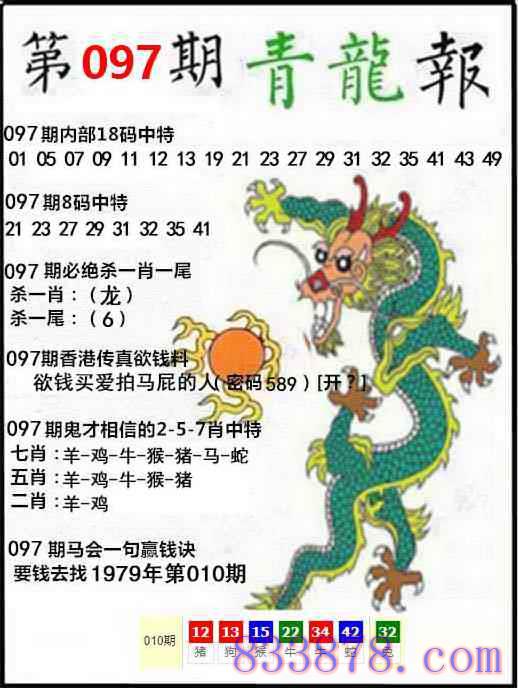 第097期青龍報
097期内部18码中特
01 05 07 09 11 12 13 19 21 23 27 29 31 32 35 41 43 49
097期8码中特
21 23 27 29 31 32 35 41
097 期必绝杀一肖一尾
杀一肖：（龙）
杀一尾：（6）
097期香港传真欲钱料
欲钱买爱拍马屁的人(密码589）[开？]
097期鬼才相信的2-5-7肖中特
七肖：羊-鸡-牛-猴-猪-马-蛇
五肖：羊-鸡-牛-猴-猪
二肖：羊-鸡
097 期马会一句赢钱诀
要钱去找1979年第010期
010期 12 13 15 22 34 42 32
猪 狗 猴 牛 牛 蛇 兔
833878.com